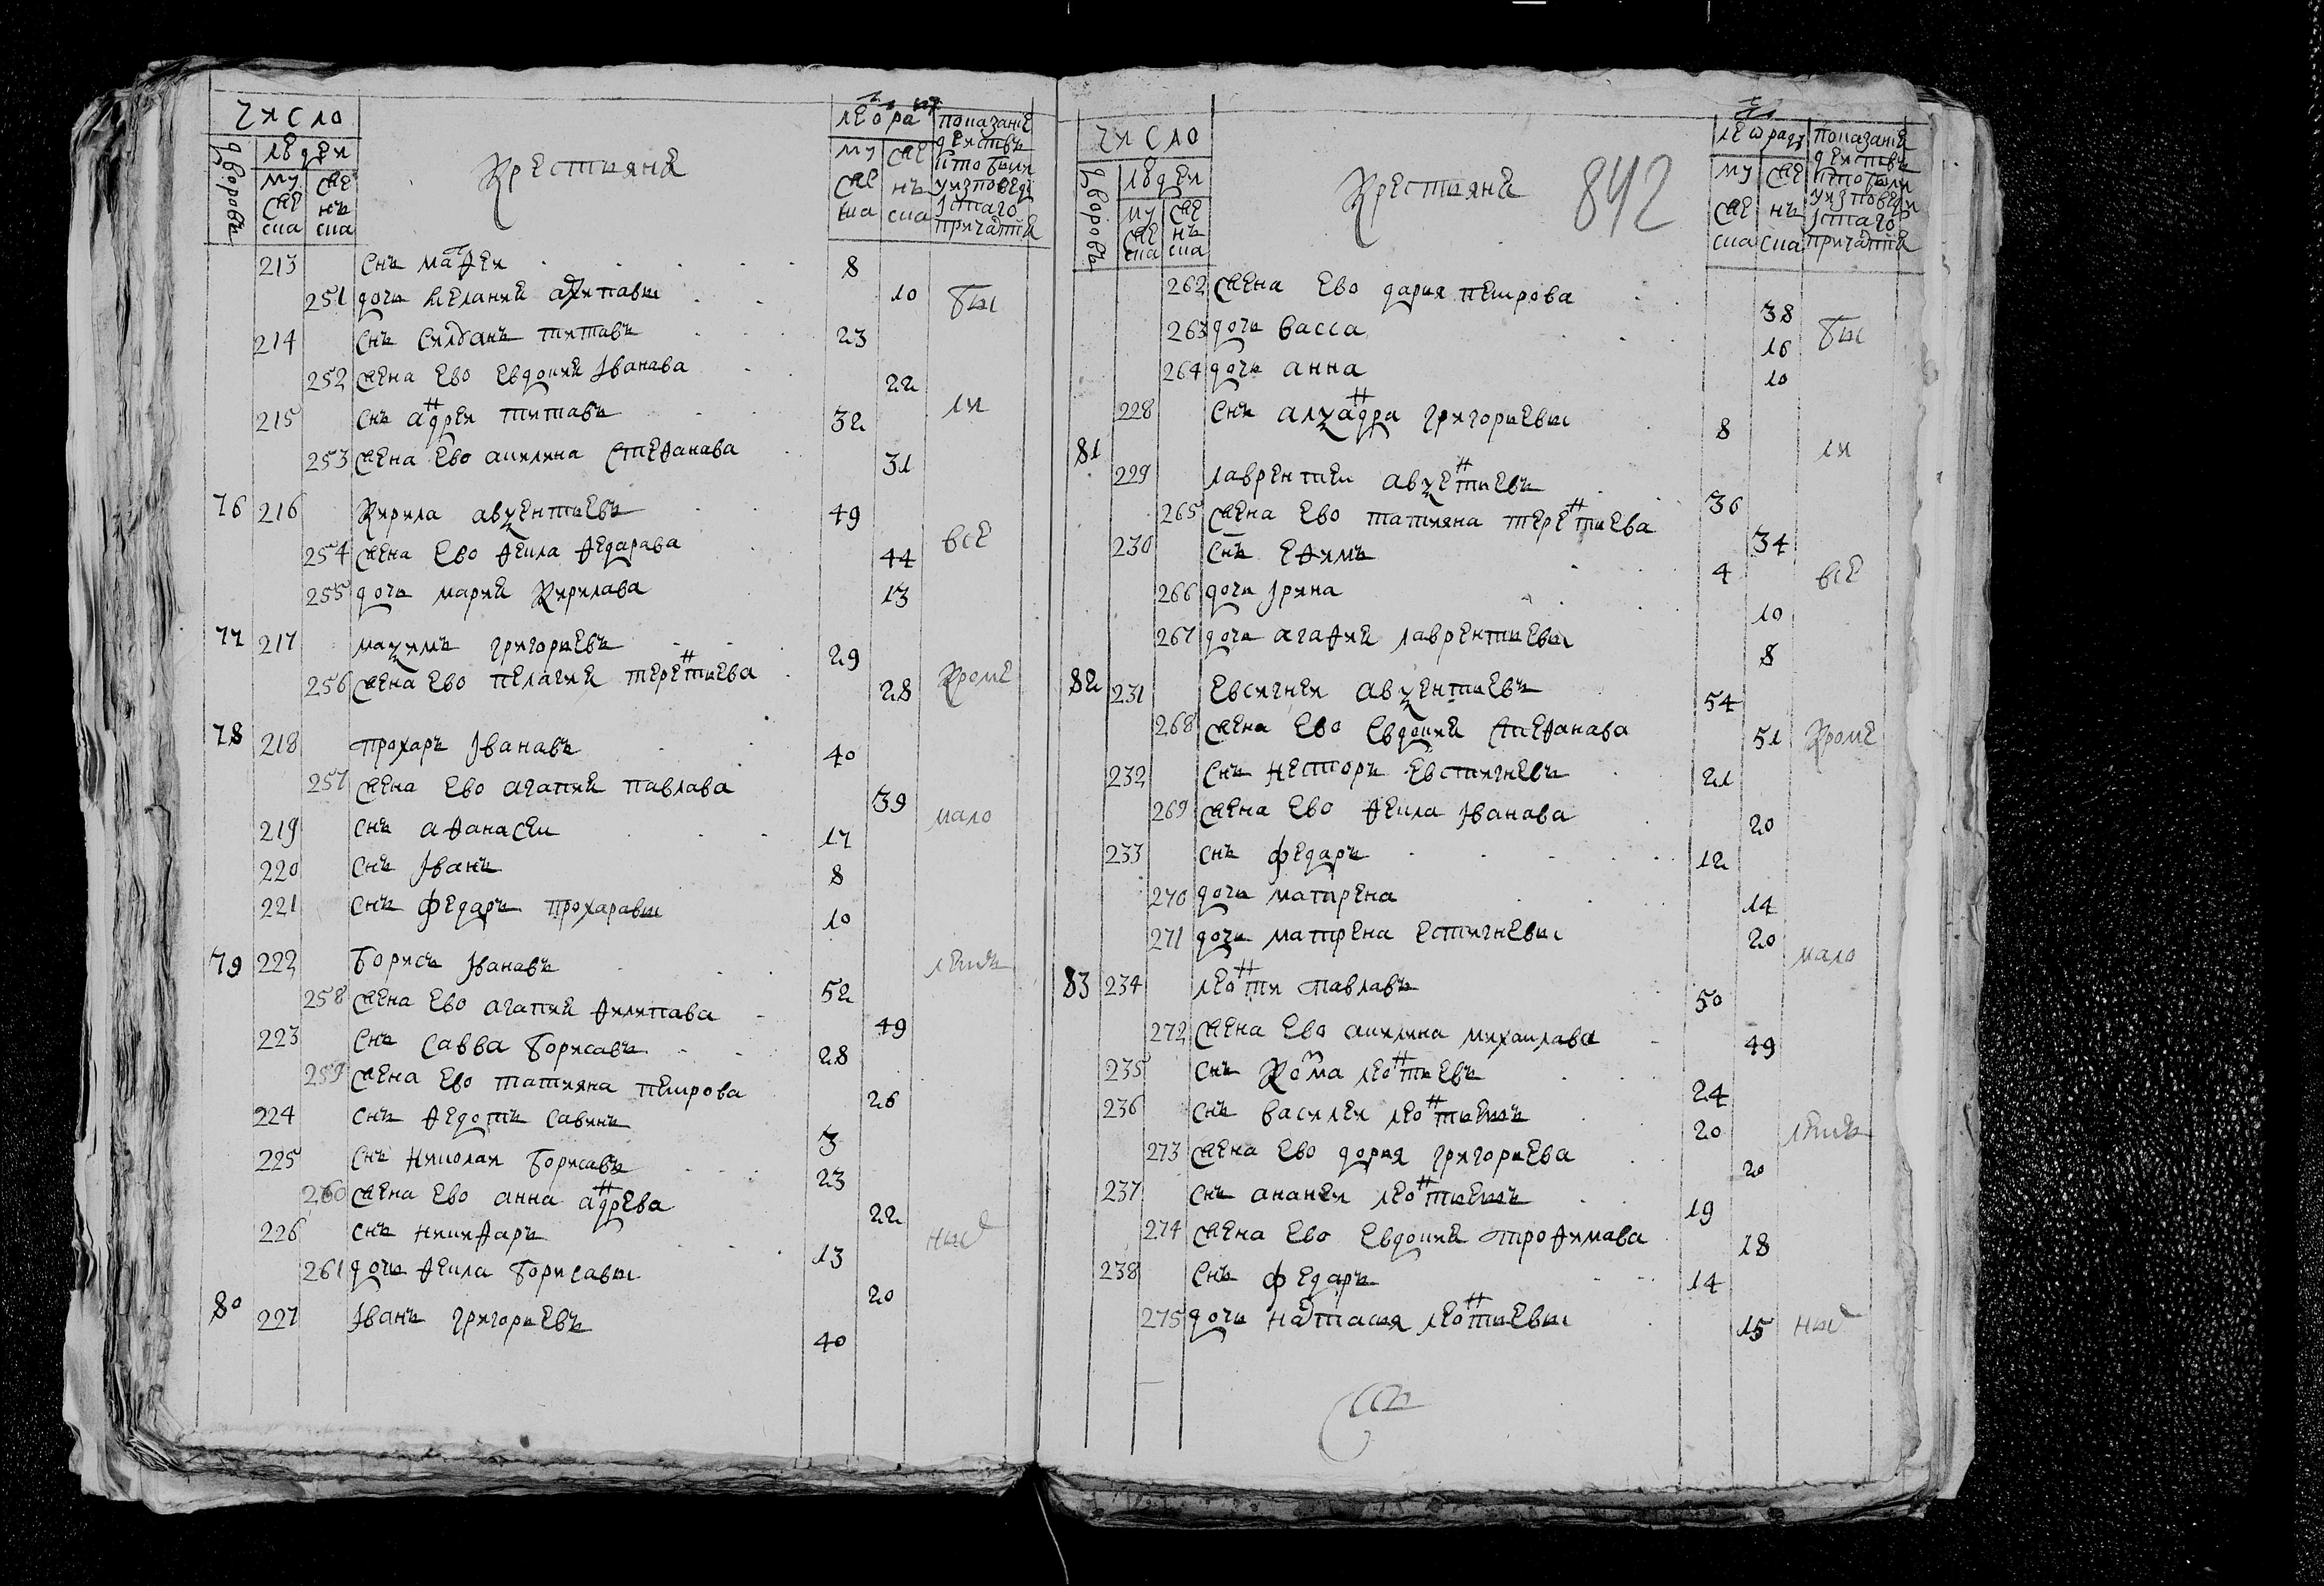 число
дворовъ
людеи
му жес ка
же нъ ска
крестьяне
лета ро
му жес ка
же нъ ска
показание деиствъ кто были у исповеди и стаго причастия
213 снъ матфеи 8
251 дочь мелания архипавы 10 бы
214 снъ силванъ титавъ 23
252 жена ево евдокия Иванава 22
215 снъ андреи титавъ 32 ли
253 жена ево акилина стефанава 31
76 216 кирила авксентиевъ 49
254 жена ево фекла федарава 44 все
255 дочь мария кирилава 13
77 217 максимъ григориевъ 29
256 жена ево пелагия терентиева 28 кроме
78 218 прохаръ Іванавъ 40
257 жена ево агапия павлава 39
219 снъ афанасеи 17 мало
220 снъ Іванъ 8
221 снъ федаръ прохаравы 10
79 222 борисъ Іванавъ 52
258 жена ево агапия филипава 49
223 снъ савва борисавъ 28
259 жена ево татияна петрова 26
224 снъ федотъ савинъ 3
225 снъ николаи борисавъ 23
260 жена ево анна андрева 22
226 снъ никифаръ 13
261 дочь фекла борисавы 20
80 227 Іванъ григориевъ 40
число
дворовъ
людеи
му жес ка
же нъ ска
крестьяне
842
му жес ка
же нъ ска
показание деиствъ кто были у исповеди и стаго причастия
262 жена ево дария петрова 38
263 дочь васса 16 бы
264 дочь анна 10
228 снъ александра григориевы 8
81 229 лаврентии авксентиевъ 36 ли
265 жена ево татияна терентиева 34
230 снъ ефимъ 4
266 дочь Ірина 10 все
267 дочь агафия лаврентиевы 8
82 231 евсигнеи авксентиевъ 54
268 жена ево евдокия стефанава 51 кроме
232 снъ несторъ евстигневъ 21
269 жена ево фекла Іванава 20
233 снъ федаръ 12
270 дочь матрена 14
271 дочь матрена естигневы 20 мало
83 234 леонти павлавъ 50
272 жена ево акилина михаилава 49
235 снъ козма леонтиевъ 24
236 снъ василеи леонтиевъ 20
273 жена ево дория григориева 20
237 снъ ананеи леонтиевъ 19
274 жена ево евдокия трофимава 18
238 снъ федаръ 14
275 дочь настасия леонтиевы 15